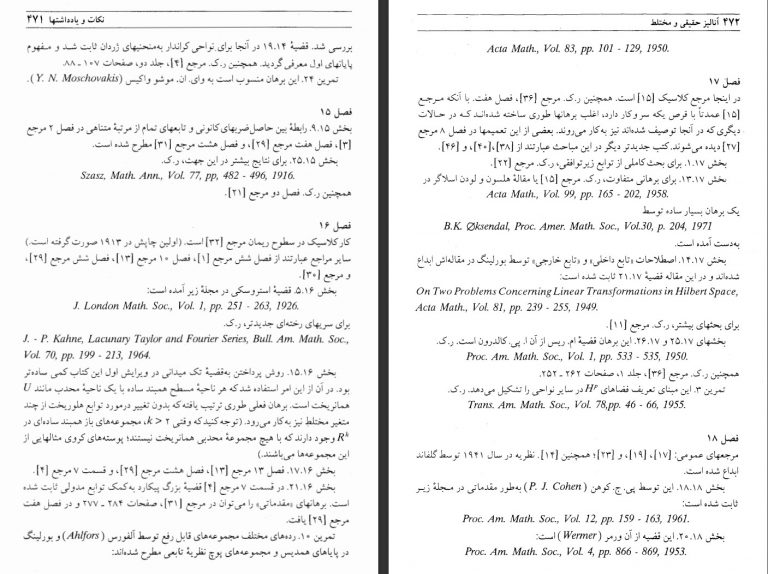 نکات و یادداشتها ۴۷۱
بررسی شد. قضیهٔ ۱۹.۱۴ در آنجا برای نواحی کراندار به‌منحنیهای ژردان ثابت شد و مفهوم
پایانهای اول معرفی گردید. همچنین ر.ک. مرجع [۴]، جلد دو، صفحات ۱۰۷ ـ ۸۸.
تمرین ۲۴. این برهان منسوب است به وای. ان. موشو واکیس (Y. N. Moschovakis).
فصل ۱۵
بخش ۹.۱۵. رابطهٔ بین حاصل‌ضربهای کانونی و تابعهای تمام از مرتبهٔ متناهی در فصل ۲ مرجع
[۳]، فصل هفت مرجع [۲۹]، و فصل هشت مرجع [۳۱] مطرح شده است.
بخش ۲۵.۱۵. برای نتایج بیشتر در این جهت، ر.ک.
Szasz, Math. Ann., Vol. 77, pp, 482 - 496, 1916.
همچنین ر.ک. فصل دو مرجع [۲۱].
فصل ۱۶
کار کلاسیک در سطوح ریمان مرجع [۳۲] است. (اولین چاپش در ۱۹۱۳ صورت گرفته است.)
سایر مراجع عبارتند از فصل شش مرجع [۱]، فصل ۱۰ مرجع [۱۳]، فصل شش مرجع [۲۹]،
و مرجع [۳۰].
بخش ۵.۱۶. قضیهٔ استروسکی در مجلهٔ زیر آمده است:
J. London Math. Soc., Vol. 1, pp. 251 - 263, 1926.
برای سریهای رخنه‌ای جدیدتر، ر.ک.
J. - P. Kahne, Lacunary Taylor and Fourier Series, Bull. Am. Math. Soc.,
Vol. 70, pp. 199 - 213, 1964.
بخش ۱۵.۱۶. روش پرداختن به‌قضیهٔ تک میدانی در ویرایش اول این کتاب کمی ساده‌تر
بود. در آن از این امر استفاده شد که هر ناحیهٔ مسطح همبند ساده با یک ناحیهٔ محدب مانند U
همانریخت است. برهان فعلی طوری ترتیب یافته که بدون تغییر درمورد توابع هلوریخت از چند
متغیر مختلط نیز به‌کار می‌رود. (توجه کنید که وقتی k > ۲، مجموعه‌های باز همبند ساده‌ای در
R^k وجود دارند که با هیچ مجموعهٔ محدبی همانریخت نیستند؛ پوسته‌های کروی مثالهایی از
این مجموعه‌ها می‌باشند.)
بخش ۱۷.۱۶. فصل ۱۳ مرجع [۱۳]، فصل هشت مرجع [۲۹]، و قسمت ۷ مرجع [۴].
بخش ۲۱.۱۶. در قسمت ۷ مرجع [۴] قضیهٔ بزرگ پیکارد به‌کمک توابع مدولی ثابت شده
است. برهانهای «مقدماتی» را می‌توان در مرجع [۳۱]، صفحات ۲۸۴ ـ ۲۷۷ و در فصل هفت
مرجع [۲۹] یافت.
تمرین ۱۰. رده‌های مختلف مجموعه‌های قابل رفع توسط آلفورس (Ahlfors) و بورلینگ
در پایاهای همدیس و مجموعه‌های پوچ نظریهٔ تابعی مطرح شده‌اند:
۴۷۲ آنالیز حقیقی و مختلط
Acta Math., Vol. 83, pp. 101 - 129, 1950.
فصل ۱۷
در اینجا مرجع کلاسیک [۱۵] است. همچنین ر.ک. مرجع [۳۶]، فصل هفت. با آنکه مرجع
[۱۵] عمدتاً با قرص یکه سر و کار دارد، اغلب برهانها طوری ساخته شده‌اند که در حالات
دیگری که در آنجا توصیف شده‌اند نیز به‌کار می‌روند. بعضی از این تعمیمها در فصل ۸ مرجع
[۲۷] دیده می‌شوند. کتب جدیدتر دیگر در این مباحث عبارتند از [۳۸]، [۴۰]، و [۴۶].
بخش ۱.۱۷. برای بحث کاملی از توابع زیرتوافقی، ر.ک. مرجع [۲۲].
بخش ۱۳.۱۷. برای برهانی متفاوت، ر.ک. مرجع [۱۵] یا مقالهٔ هلسون و لودن اسلاگر در
Acta Math., Vol. 99, pp. 165 - 202, 1958.
یک برهان بسیار ساده توسط
B.K. Øksendal, Proc. Amer. Math. Soc., Vol.30, p. 204, 1971
به‌دست آمده است.
بخش ۱۴.۱۷. اصطلاحات «تابع داخلی» و «تابع خارجی» توسط بورلینگ در مقاله‌اش ابداع
شده‌اند و در این مقاله قضیهٔ ۲۱.۱۷ ثابت شده است:
On Two Problems Concerning Linear Transformations in Hilbert Space,
Acta Math., Vol. 81, pp. 239 - 255, 1949.
برای بحثهای بیشتر، ر.ک. مرجع [۱۱].
بخشهای ۲۵.۱۷ و ۲۶.۱۷. این برهان قضیهٔ ام. ریس از آن ا. پی. کالدرون است. ر.ک.
Proc. Am. Math. Soc., Vol. 1, pp. 533 - 535, 1950.
همچنین ر.ک. مرجع [۳۶]، جلد ۱، صفحات ۲۶۲ ـ ۲۵۲.
تمرین ۳. این مبنای تعریف فضاهای H^p در سایر نواحی را تشکیل می‌دهد. ر.ک.
Trans. Am. Math. Soc., Vol. 78,pp. 46 - 66, 1955.
فصل ۱۸
مرجعهای عمومی: [۱۷]، [۱۹]، و [۲۳]؛ همچنین [۱۴]. نظریه در سال ۱۹۴۱ توسط گلفاند
ابداع شده است.
بخش ۱۸.۱۸. این توسط پی. ج. کوهن (P. J. Cohen) به‌طور مقدماتی در مجلهٔ زیر
ثابت شده است:
Proc. Am. Math. Soc., Vol. 12, pp. 159 - 163, 1961.
بخش ۲۰.۱۸. این قضیه از آن ورمر (Wermer) است:
Proc. Am. Math. Soc., Vol. 4, pp. 866 - 869, 1953.